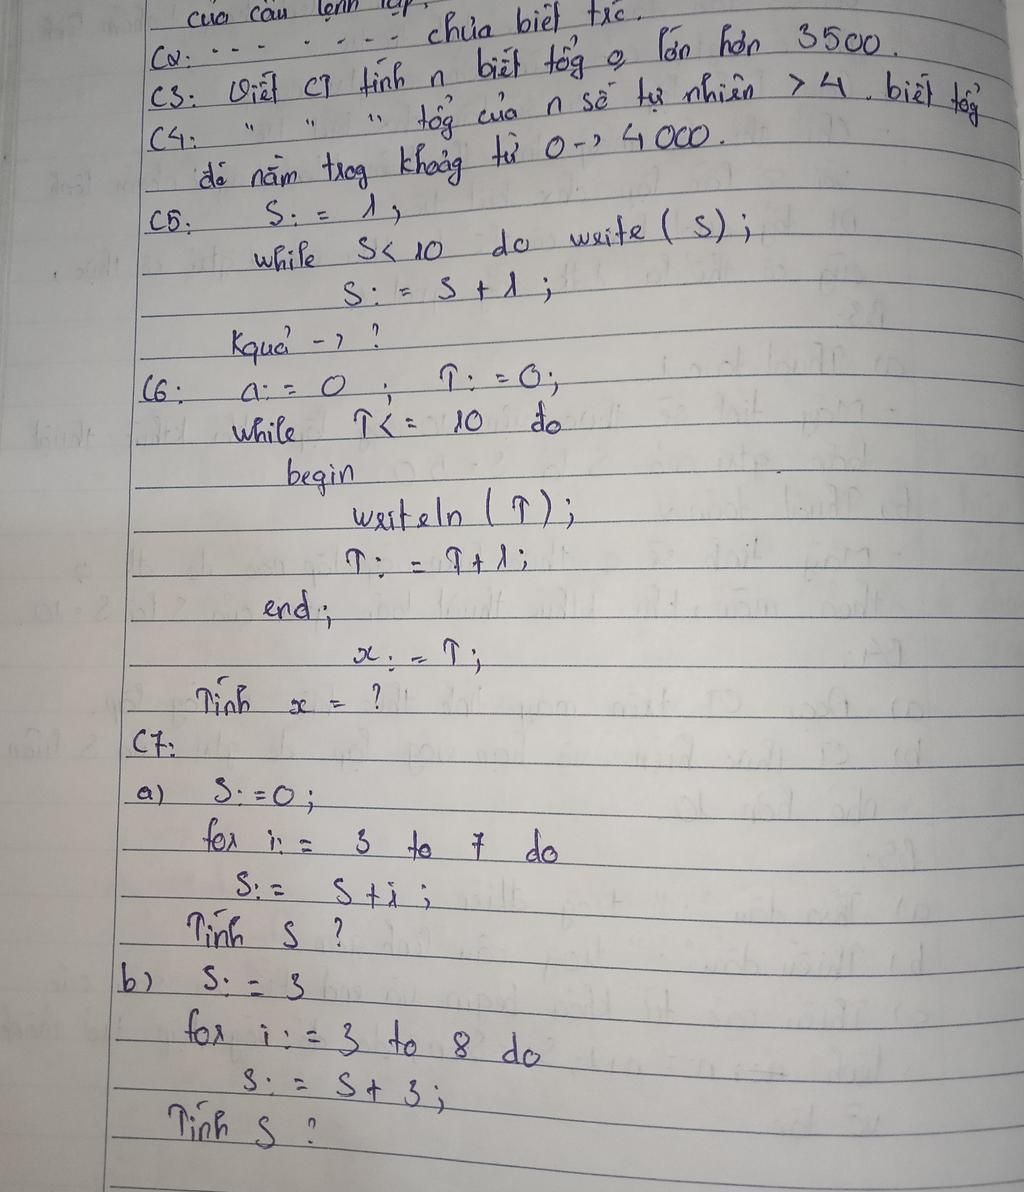 của câu lệnh lặp.
C2: .. - - - - - - chưa biết trc.
C3: Viết CT tính n biết tổg lớn hơn 3500.
C4: " " " tổg của n số tự nhiên > 4. biết tổg
đó nằm trog khoảg từ 0 -> 4000.
C5: S:= 1;
while S< 10 do write (S);
S:= S + 1;
Kquả -> ?
C6: a:= 0 ; T:= 0;
while T<= 10 do
begin
writeln (T);
T:= T+1;
end;
x:= T;
Tính x = ?
C7:
a) S:=0;
for i:= 3 to 7 do
S:= S+i;
Tính S ?
b) S:= 3
for i:= 3 to 8 do
S:= S+ 3;
Tính S ?